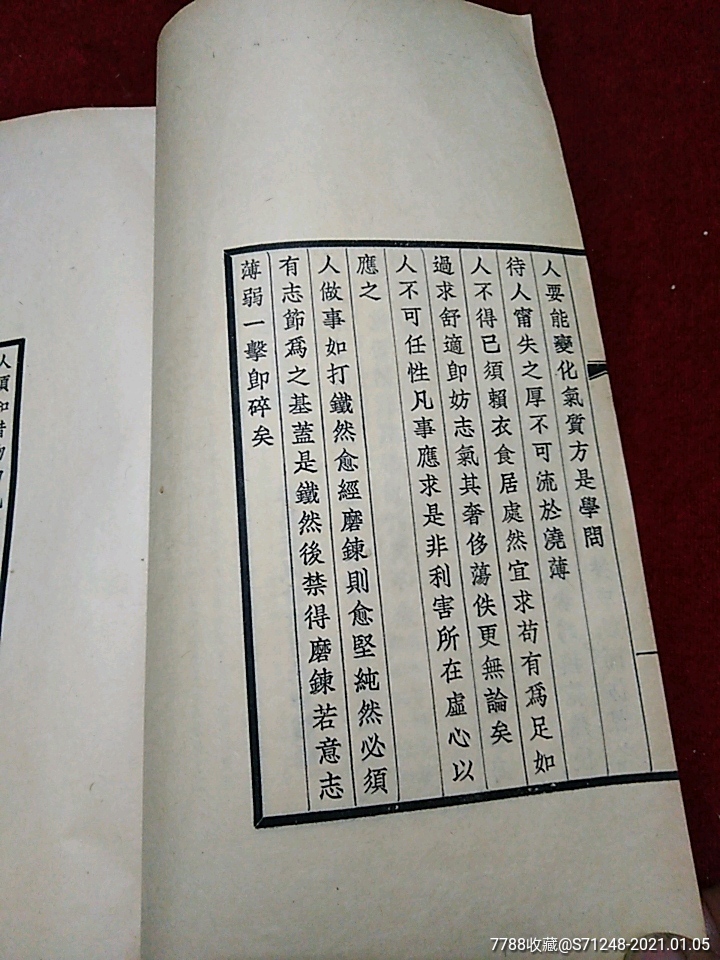 人要能變化氣質方是學問
待人甯失之厚不可流於澆薄
人不得已須賴衣食居處然宜求苟有爲足如
過求舒適卽妨志氣其奢侈蕩佚更無論矣
人不可任性凡事應求是非利害所在虛心以
應之
人做事如打鐵然愈經磨鍊則愈堅純然必須
有志節爲之基蓋是鐵然後禁得磨鍊若意志
薄弱一擊卽碎矣
7788收藏@S71248-2021.01.05